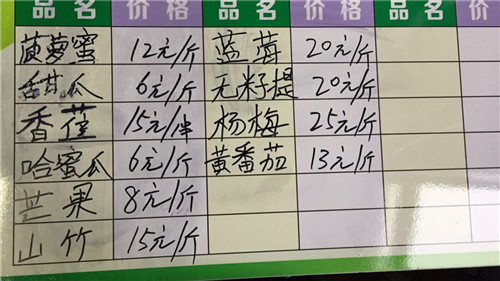 品名 价格 品名 价格 品名
菠萝蜜 12元/斤 蓝莓 20元/斤
甜瓜 6元/斤 无籽提 20元/斤
香蕉 15元/半 杨梅 25元/斤
哈蜜瓜 6元/斤 黄番茄 13元/斤
芒果 8元/斤
山竹 15元/斤